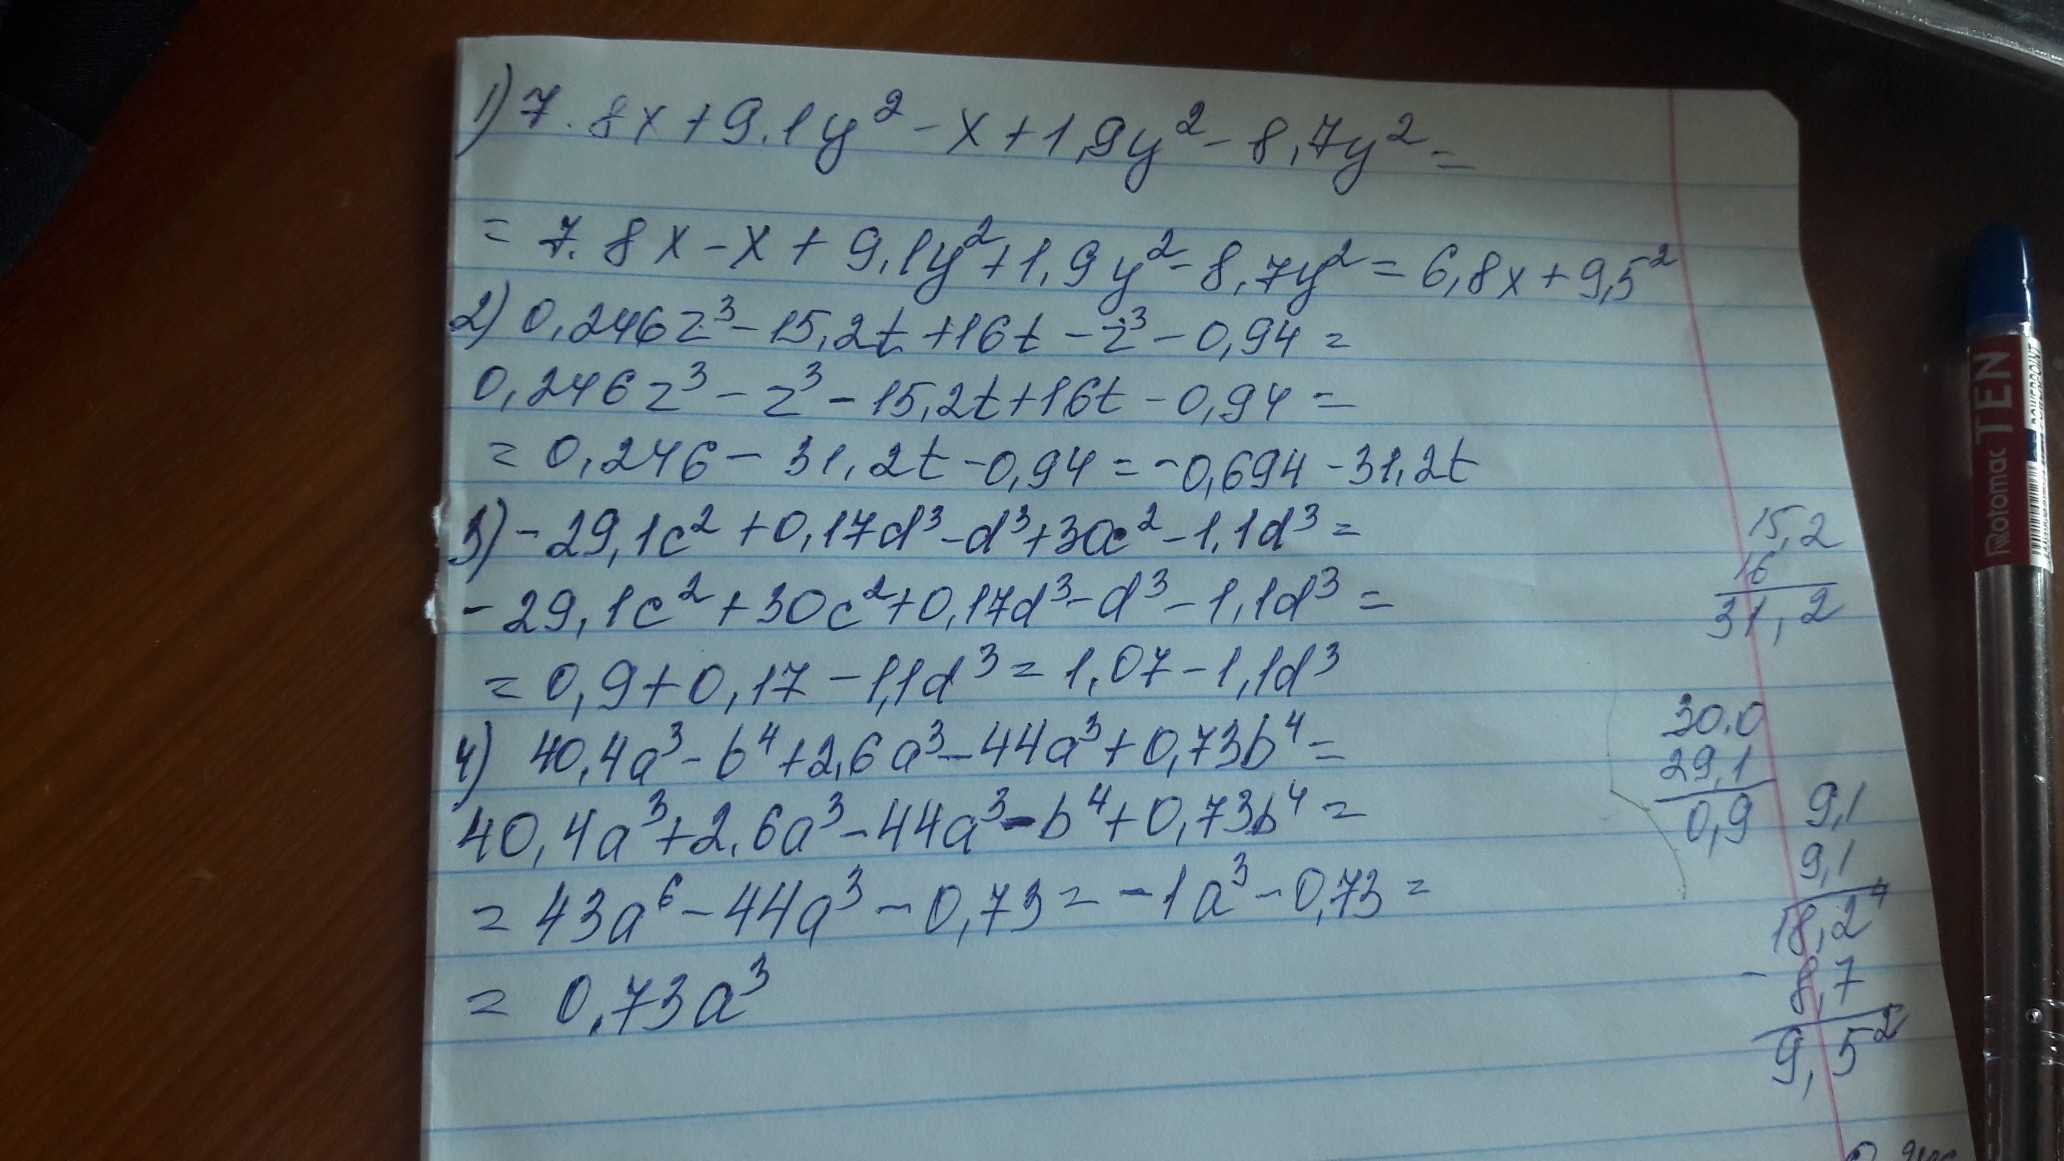 1) 7.8x+9.1y²-x+1,9y²-8,7y²=
= 7.8x-x+9,1y²+1,9y²-8,7y²=6,8x+9,5²
2) 0,246z³-15,2t+16t-z³-0,94=
0,246z³-z³-15,2t+16t-0,94=
= 0,246-31,2t-0,94=-0,694-31,2t
3) -29,1c²+0,17d³-d³+30c²-1,1d³=
-29,1c²+30c²+0,17d³-d³-1,1d³=
= 0,9+0,17-1,1d³=1,07-1,1d³
4) 40,4a³-b⁴+2,6a³-44a³+0,73b⁴=
40,4a³+2,6a³-44a³-b⁴+0,73b⁴=
= 43a⁶-44a³-0,73=-1a³-0,73=
= 0,73a³
15,2
16
31,2
30.0
29,1
0,9
9,1
9,1
18,2⁴
- 8,7
9,5²
Rotomac TEN